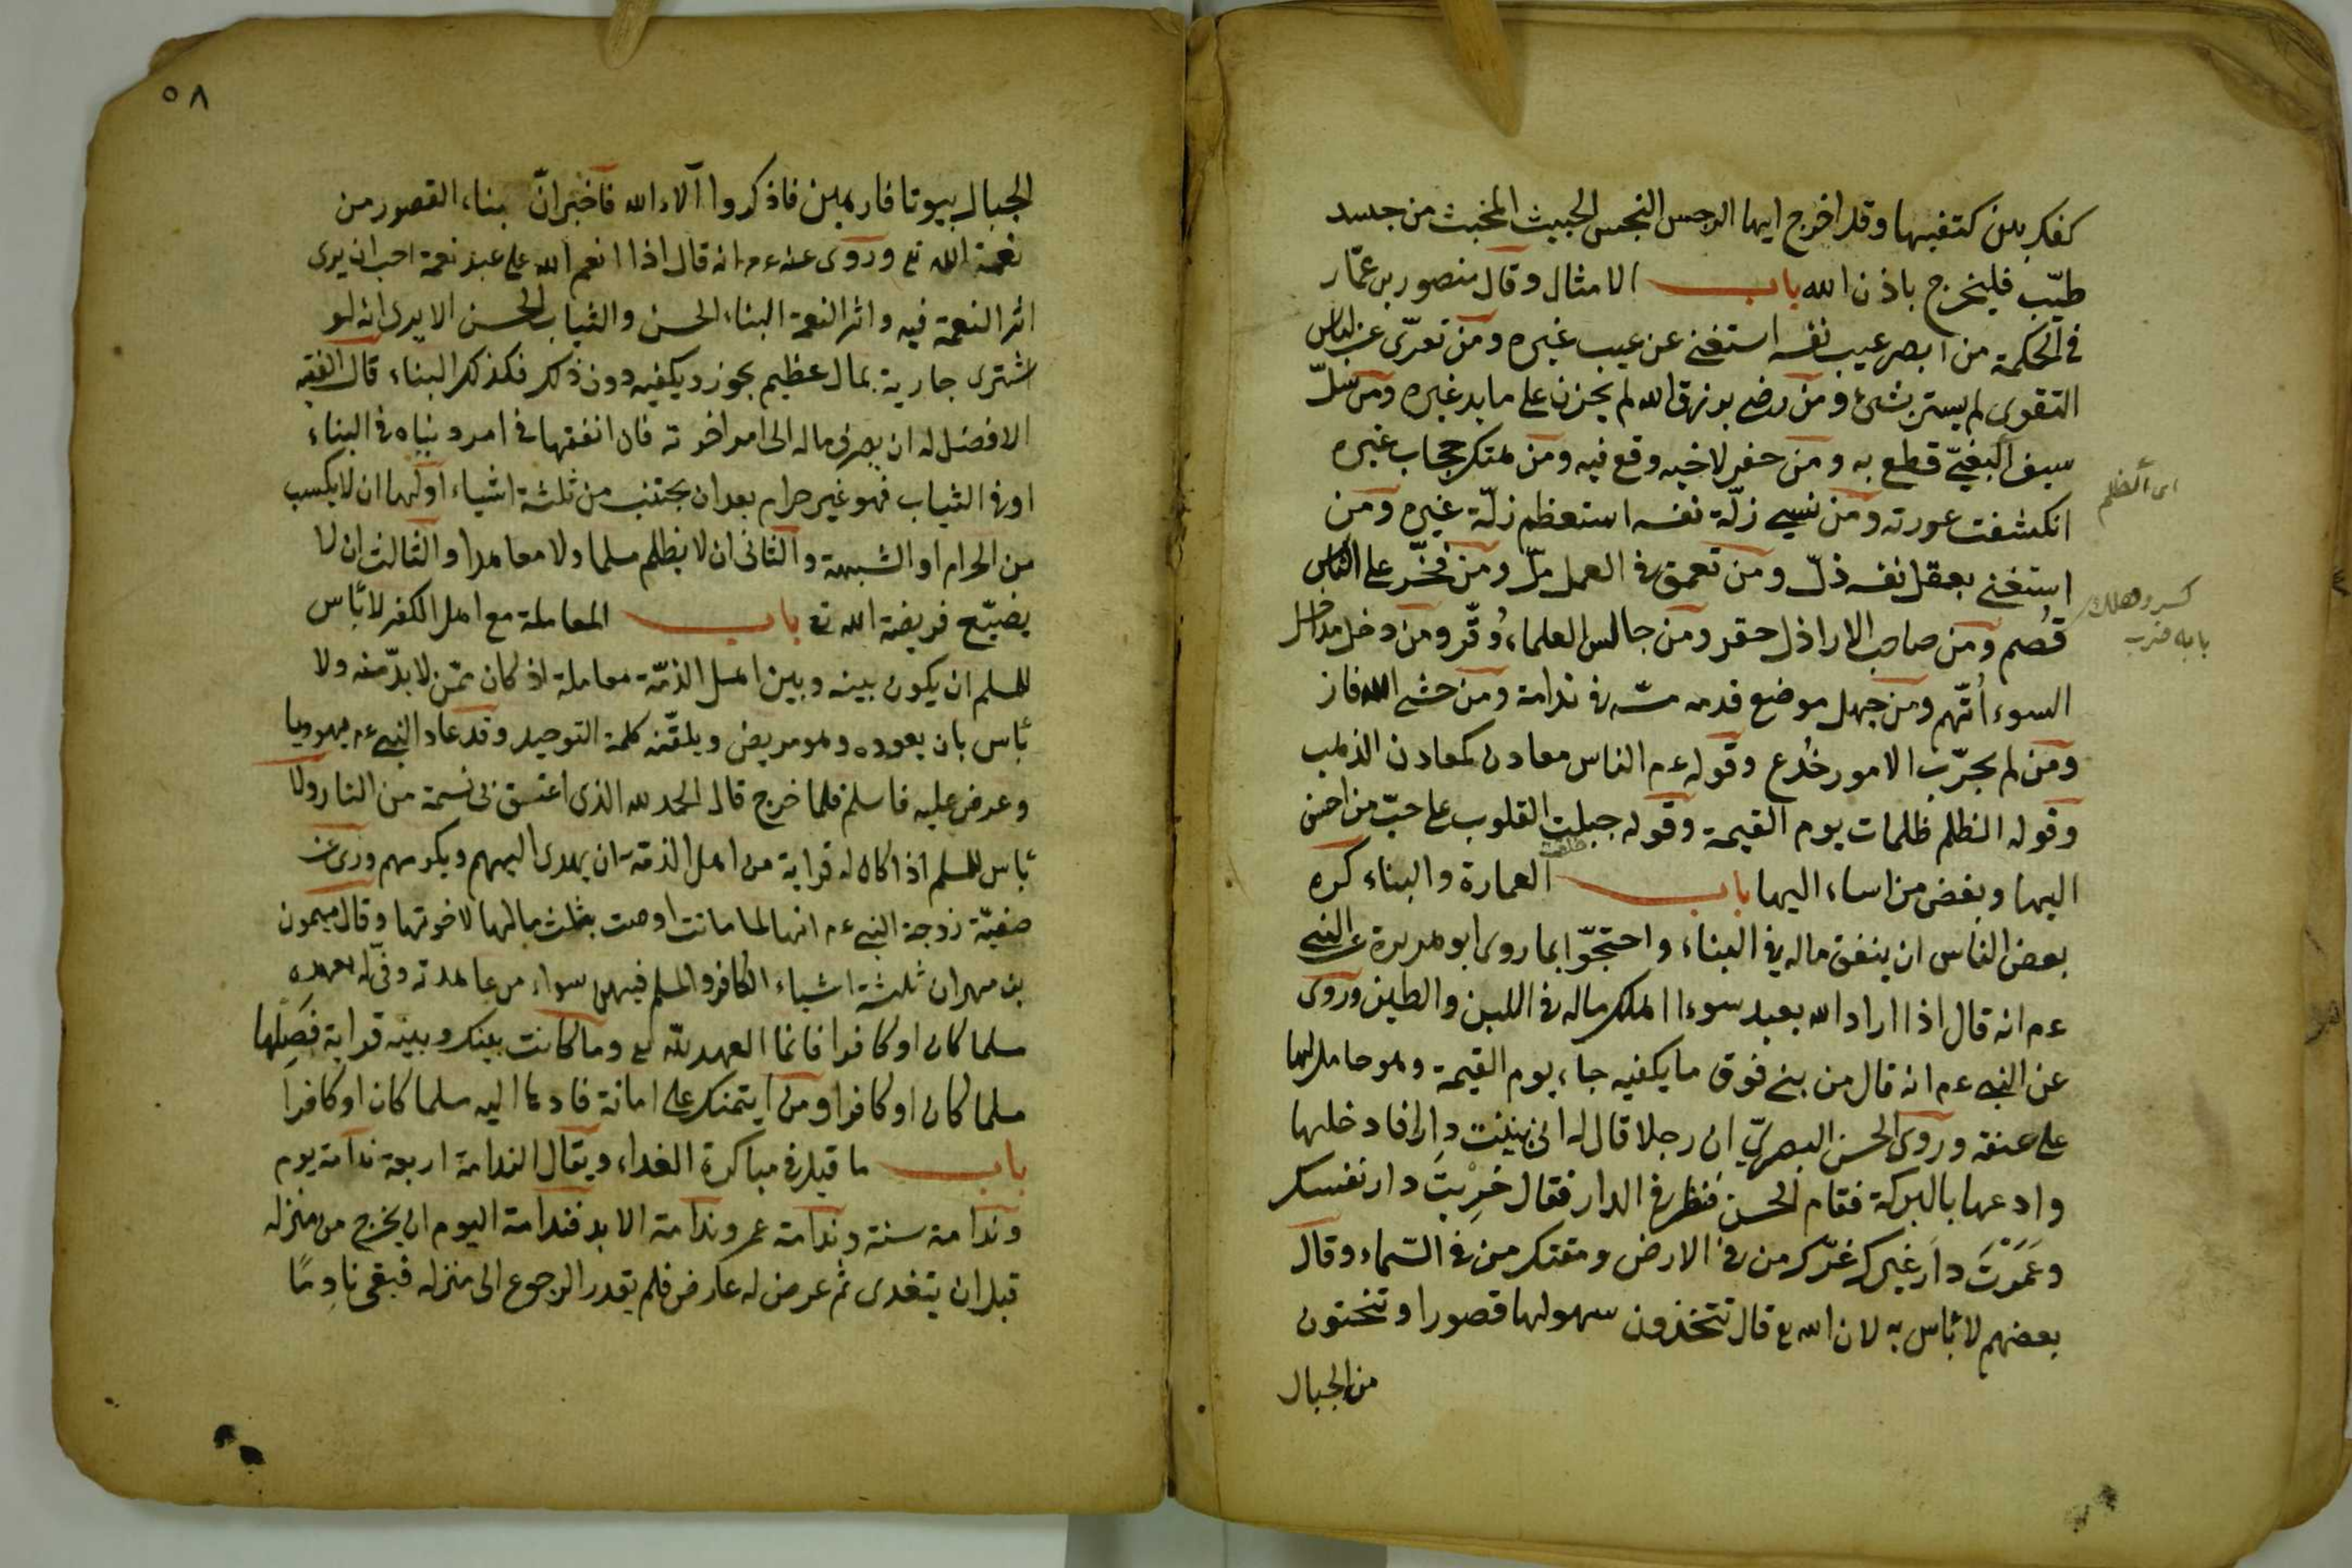 كفك بين كتفيها وقد اخرج ايها الرجس النجس الخبيث المخبث من جسد
طيّب فليخرج باذن الله باب الامثال وقال منصور بن عمّار
فى الحكمة من ابصر عيب نفسه استغنى عن عيب غيره ومن تعرّى عن لباس
التقوى لم يستر بشئ ومن رضى برزق الله لم يحزن على ما بيد غيره ومن سلّ
سيف البغى قطع به ومن حفر لاخيه وقع فيه ومن هتك حجاب غيره
انكشفت عورته ومن نسى زلّة نفسه استعظم زلّة غيره ومن
استغنى بعقل نفسه ذلّ ومن تعمق فى العمل ملّ ومن فخّر على الناس
قُصم ومن صاحب الاراذل حقر ومن جالس العلماء وُقّر ومن دخل مداخل
السوء اُتّهم ومن جهل موضع قدمه مشى فى ندامة ومن خشى الله فاز
ومن لم يجرّب الامور خُدع وقوله عم الناس معادن كمعادن الذهب
وقوله الظلم ظلمات يوم القيمة وقوله جبلت القلوب على حبّ من احسن
اليها وبغض من اساء اليها باب العمارة والبناء كره
بعض الناس ان ينفق ماله فى البناء واحتجّوا بما روى ابو هريرة عن النبى
عم انه قال اذا اراد الله بعبد سوءا اهلك ماله فى اللبن والطين وروى
عن النبى عم انه قال من بنى فوق ما يكفيه جاء يوم القيمة وهو حاملها
على عنقه وروى الحسن البصرىّ ان رجلا قال له انى بنيت دارا فادخلها
وادعها بالبركة فقام الحسن فنظر فى الدار فقال خرِبتَ دار نفسك
وعَمَرْتَ دار غيرك غرّك من فى الارض ومقتك من فى السّماء وقال
بعضهم لا بأس به لان الله تع قال تتخذون سهولها قصورا وتنحتون
من الجبال
اى الظلم
كسر وهلك
بابه ضرب
٥٨
الجبال بيوتا فارهين فاذكروا آلاء الله فاخبر انّ بناء القصور من
نعمة الله تع وروى عنه عم انه قال اذا انعم الله على عبد نعمة احب ان يرى
اثر النعمة فيه واثر النعمة البناء الحسن والثياب الحسن الا يرى انه لو
اشترى جارية بمال عظيم يجوز ويكفيه دون ذلك فكذلك البناء قال الفقيه
الافضل له ان يصرف ماله الى امر اخرته فان انفقها فى امر دنياه فى البناء
او فى الثياب فهو غير حرام بعد ان يجتنب من ثلثة اشياء اولها ان لا يكسب
من الحرام او الشبهة والثانى ان لا يظلم مسلما ولا معاهدا والثالث ان لا
يضيّع فريضة الله تع باب المعاملة مع اهل الكفر لا بأس
للمسلم ان يكون بينه وبين اهل الذمّة معاملة اذ كان ممّن لا بدّ منه ولا
بأس بان يعوده وهو مريض ويلقّنه كلمة التوحيد وقد عاد النبى عم يهوديا
وعرض عليه فاسلم فلما خرج قال الحمد لله الذى اعتق بى نسمة من النار ولا
بأس للمسلم اذا كان له قرابة من اهل الذمة ان يهدى اليهم ويكرمهم وروى عن
صفيّة زوجة النبى عم انها لما ماتت اوصت بثلث مالها لاخوتها وقال ميمون
بن مهران ثلثة اشياء الكافر والمسلم فيهن سواء من عاهدته وفّى له بعهده
مسلما كان او كافرا فانما العهد للّه تع وما كانت بينك وبينه قرابة فَصِلها
مسلما كان او كافرا ومن ايتمنك على امانة فادها اليه مسلما كان او كافرا
باب ما قيل فى مباكرة الغداء ويقال الندامة اربعة ندامة يوم
وندامة سنة وندامة عمر وندامة الابد فندامة اليوم ان يخرج من منزله
قبل ان يتغدى ثم عرض له عارض فلم يقدر الرجوع الى منزله فبقى نادِمًا